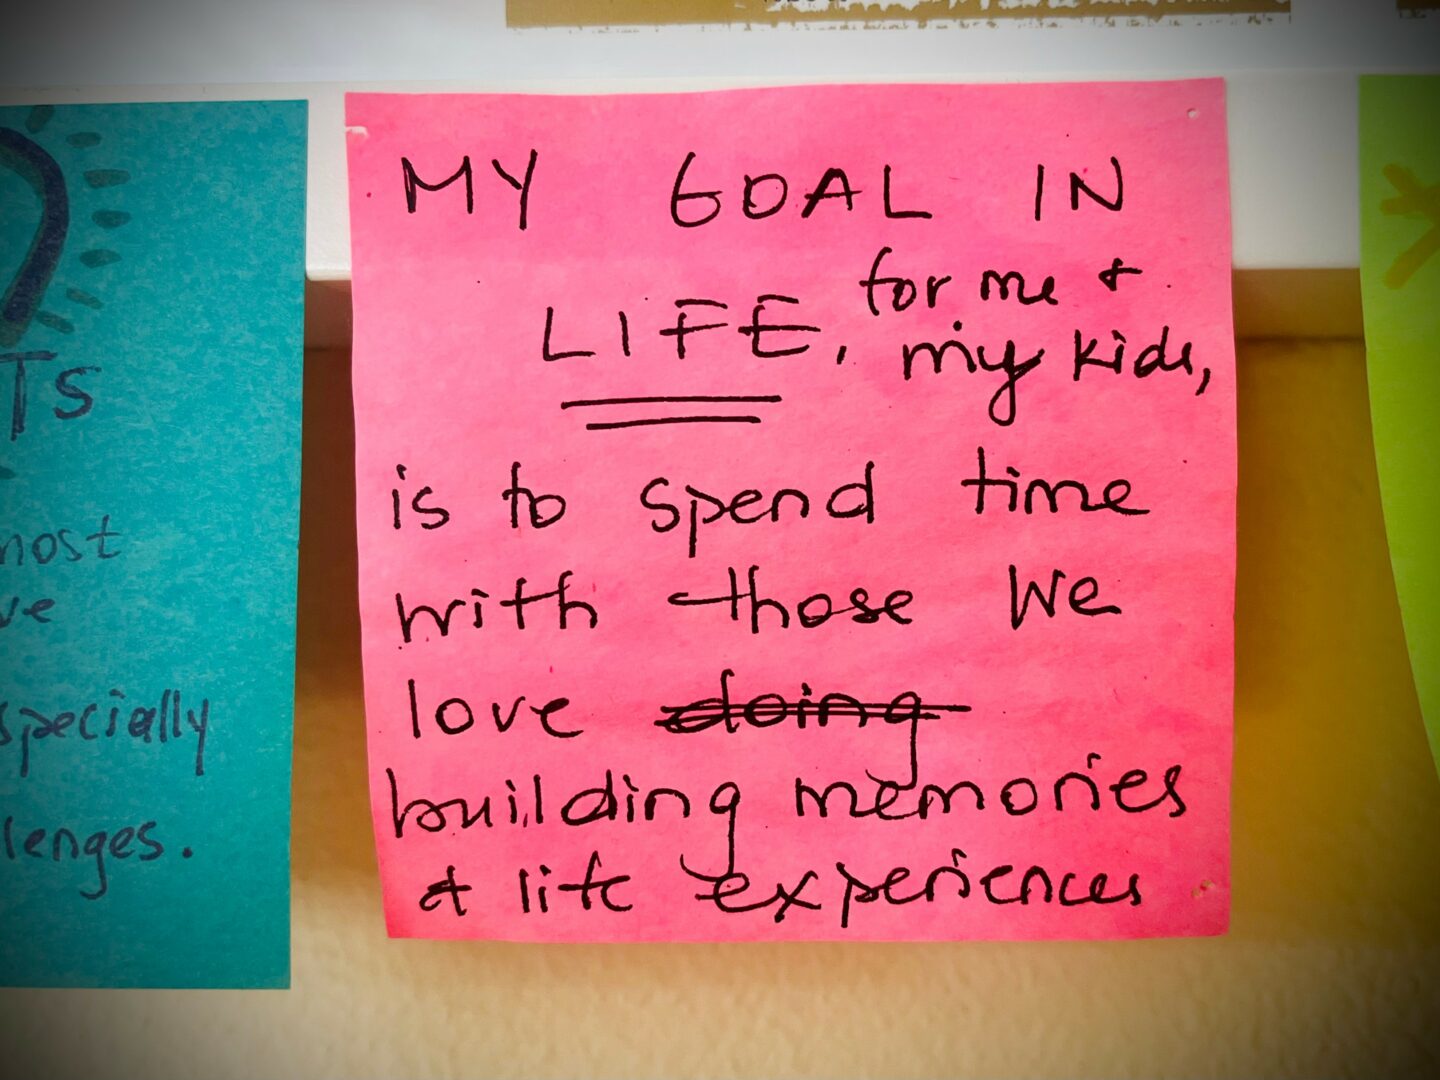 MY GOAL IN
LIFE, for me &
my kids,
is to spend time
with those we
love doing
building memories
& life experiences
TS
most
ve
specially
lenges.